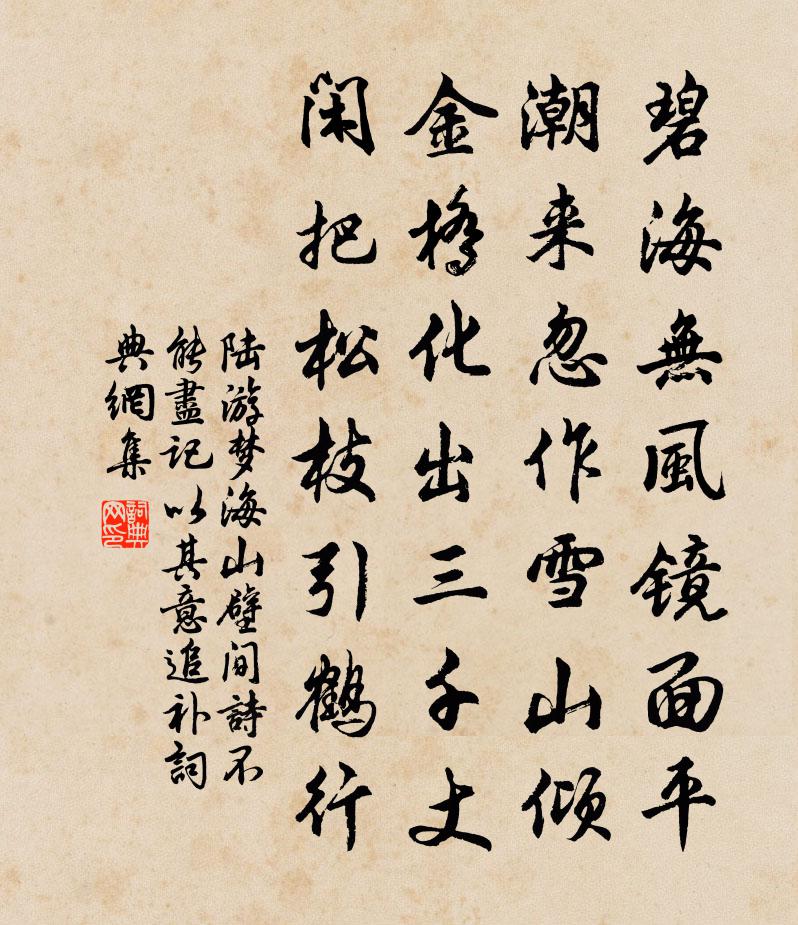 碧海無風镜面平
潮来忽作雪山倾
金橋化出三千丈
闲把松枝引鹤行
陆游梦海山壁间詩不
能盡记以其意追补詞
典網集
詞典
网印